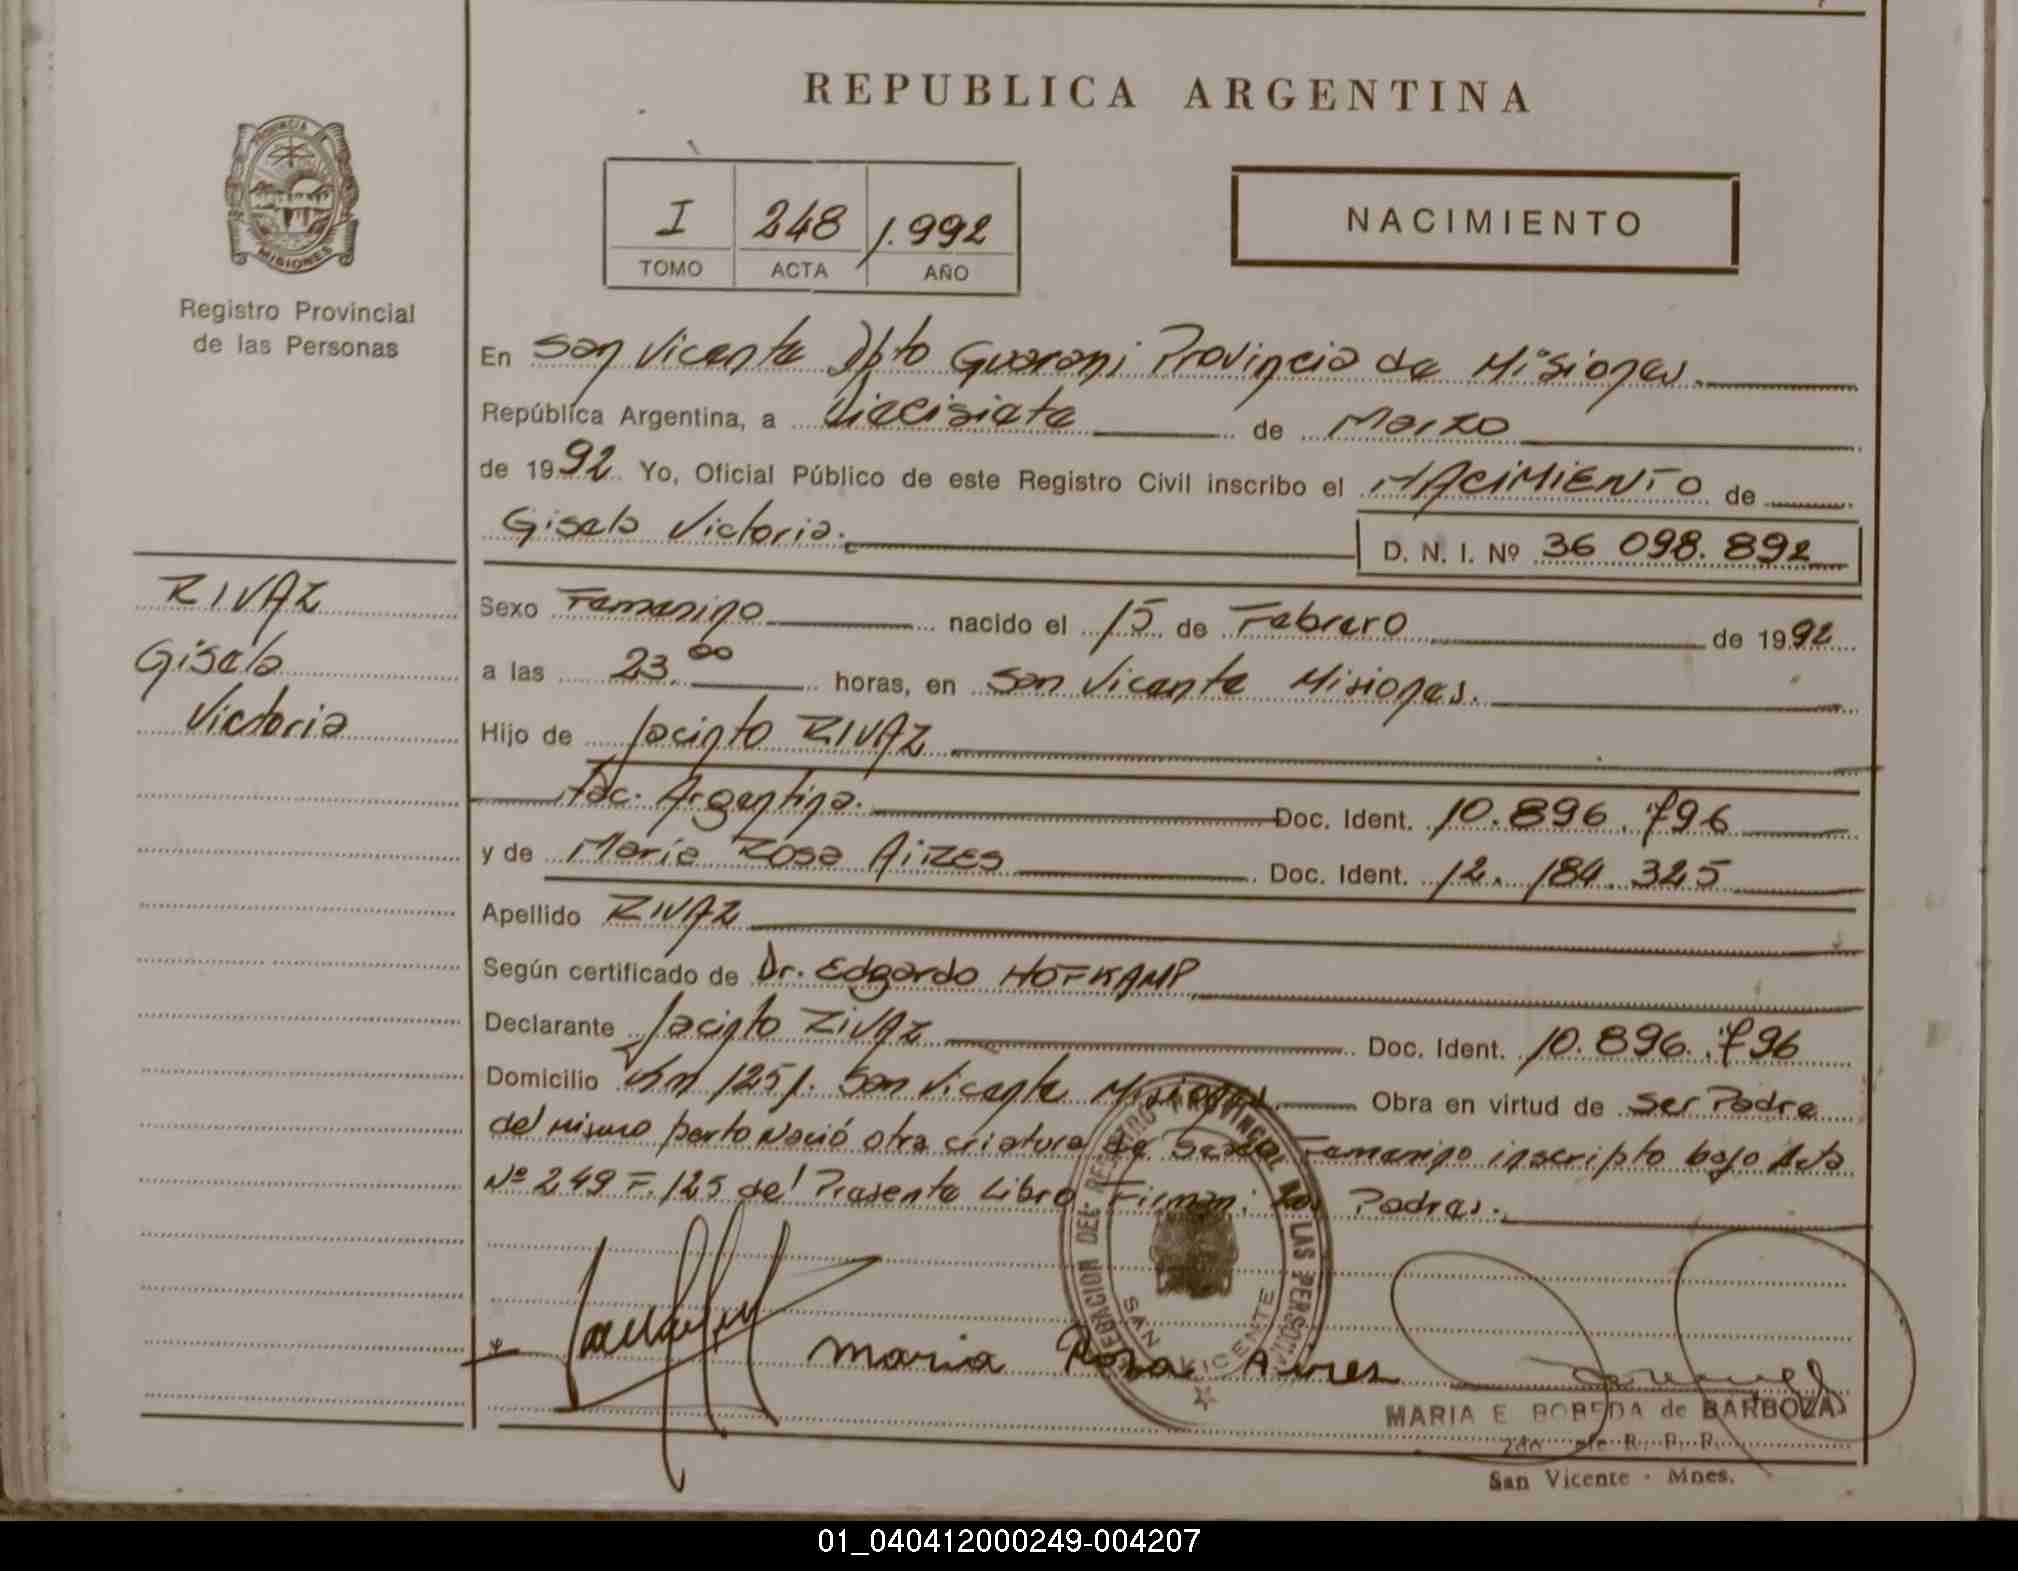 REPUBLICA ARGENTINA
PROVINCIA
MISIONES
Registro Provincial
de las Personas
I 248 1.992
TOMO ACTA AÑO
NACIMIENTO
En San Vicente Dpto Guarani Provincia de Misiones.
República Argentina, a diecisiete de Marzo
de 1992 Yo, Oficial Público de este Registro Civil inscribo el NACIMIENTO de
Gisela Victoria.
D. N. I. Nº 36 098. 892
RIVAZ
Gisela
Victoria
Sexo Femenino nacido el 15 de Febrero de 1992
a las 23.00 horas, en San Vicente Misiones.
Hijo de Jacinto RIVAZ
Nac. Argentina. Doc. Ident. 10.896.796
y de Maria Rosa AiRES Doc. Ident. 12. 184. 325
Apellido RIVAZ
Según certificado de Dr. Edgardo HOFKAMP
Declarante Jacinto RiVAZ Doc. Ident. 10.896.796
Domicilio Km 1251. San Vicente Misiones Obra en virtud de Ser Padre
del mismo parto Nació otra criatura de Sexo Femenino inscripto bajo Acta
Nº 249 F. 125 del Presente Libro Firman: Los Padres.
DELEGACION DEL REGISTRO PROVINCIAL DE LAS PERSONAS
SAN VICENTE
Maria Rosa Aires
MARIA E. BOBEDA de BARBOZA
2do Jefe R. P. P.
San Vicente - Mnes.
01_040412000249-004207